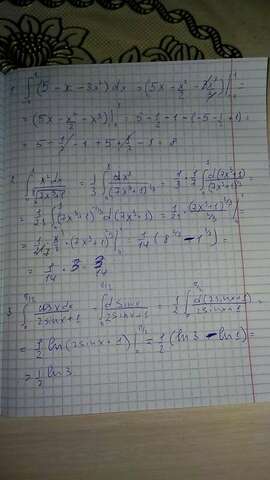 1. ∫₋₁¹ (5 - x - 3x²) dx = (5x - x²/2 - 3x³/3) |₋₁¹ =
= (5x - x²/2 - x³) |₋₁¹ = 5 - 1/2 - 1 - (-5 - 1/2 + 1) =
= 5 - 1/2 - 1 + 5 + 1/2 - 1 = 8
2. ∫₀¹ x²dx = 1/3 ∫₀¹ dx³/(7x³+1)^(1/3) = 1/3 · 1/7 ∫₀¹ d(7x³+1)/(7x³+1)^(1/3) =
= 1/21 ∫₀¹ (7x³+1)^(-1/3) d(7x³+1) = 1/21 · (7x³+1)^(2/3) |₀¹ =
(7x³+1)^(2/3) |₀¹ = 1/14 (8^(2/3) - 1^(2/3)) =
= 1/14 · 3 = 3/14
3. ∫₀^(π/2) cosxdx/2sinx+1 = ∫₀^(π/2) dsinx/2sinx+1 = 1/2 ∫₀^(π/2) d(2sinx+1)/2sinx+1 =
= 1/2 ln(2sinx+1) |₀^(π/2) = 1/2 (ln3 - ln1) =
= 1/2 ln3